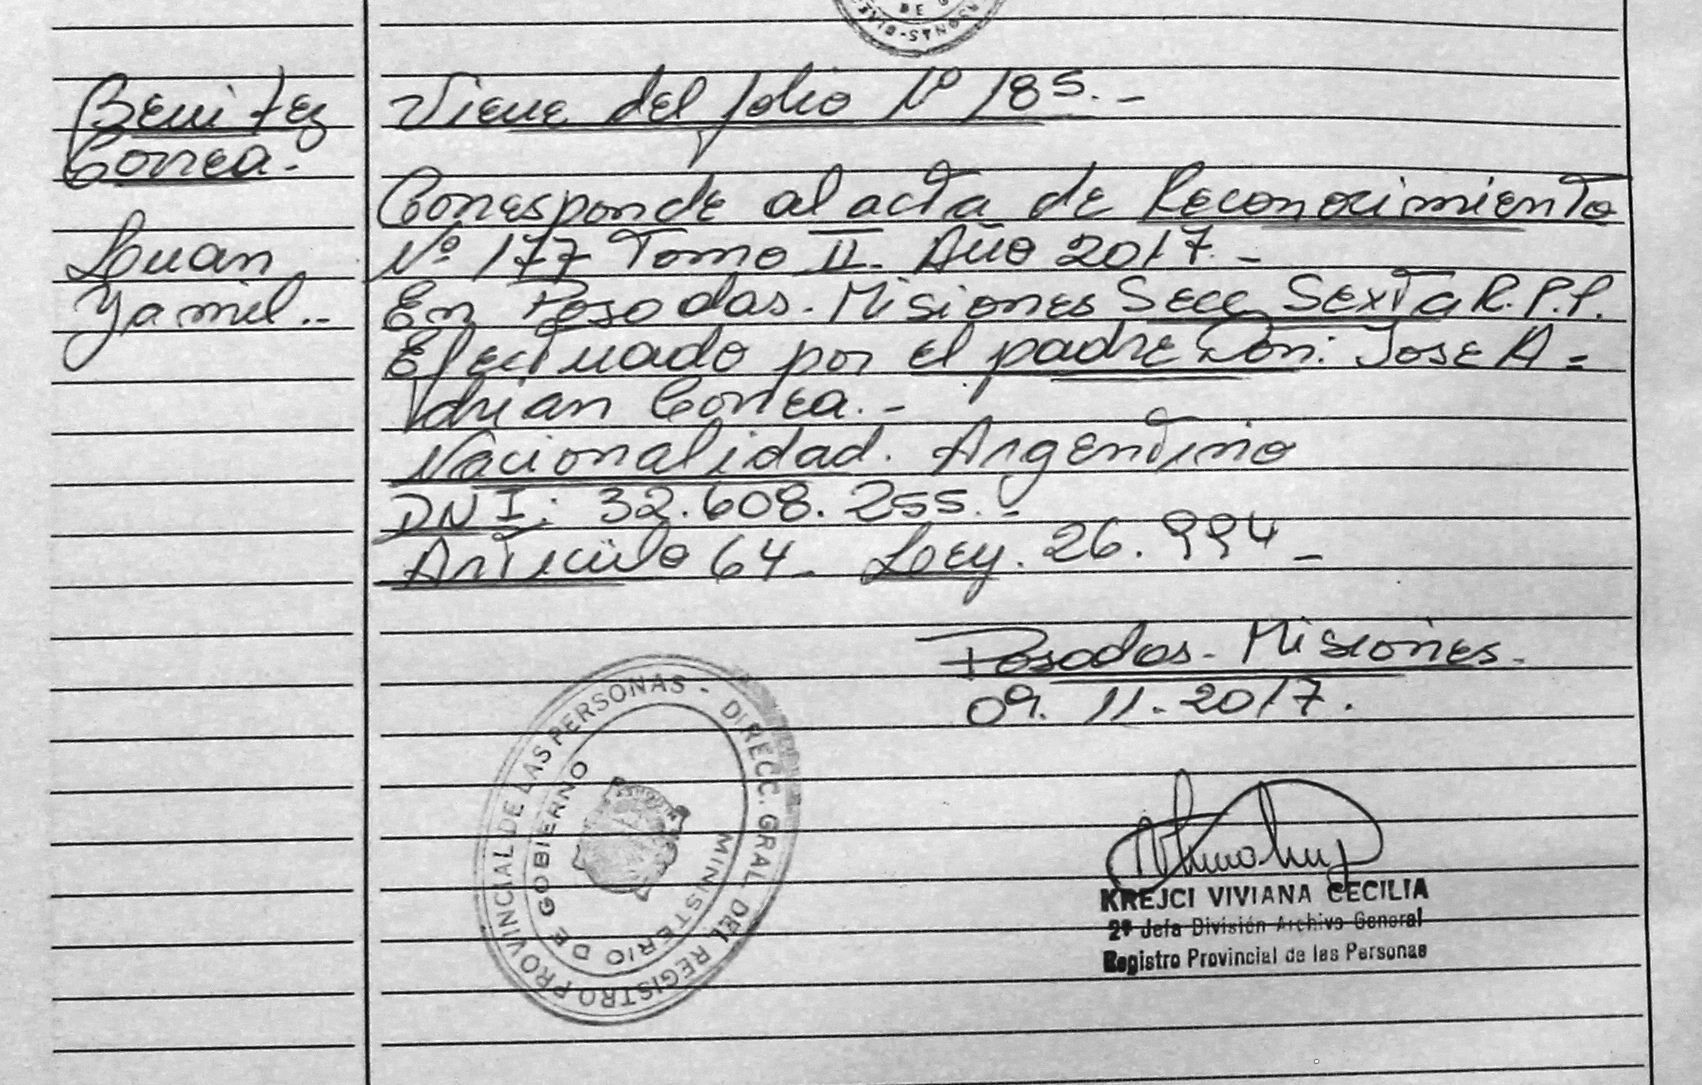 DE
PERSONAS-DIREC
Benitez
Correa.
Luan
Yamil..
Viene del folio Nº 185.-
Corresponde al acta de Reconocimiento
Nº 177 Tomo II. Año 2017.-
En Posadas. Misiones Secc Sexta R.P.P.
Efectuado por el padre Don: Jose A=
drian Correa.-
Nacionalidad. Argentino
DNI: 32.608.255.-
Articulo 64. Ley. 26.994-
Posadas. Misiones.
09. 11. 2017.
REGISTRO PROVINCIAL DE LAS PERSONAS - DIRECC. GRAL. DEL
MINISTERIO DE GOBIERNO
KREJCI VIVIANA CECILIA
2ª Jefa División Archivo General
Registro Provincial de las Personas